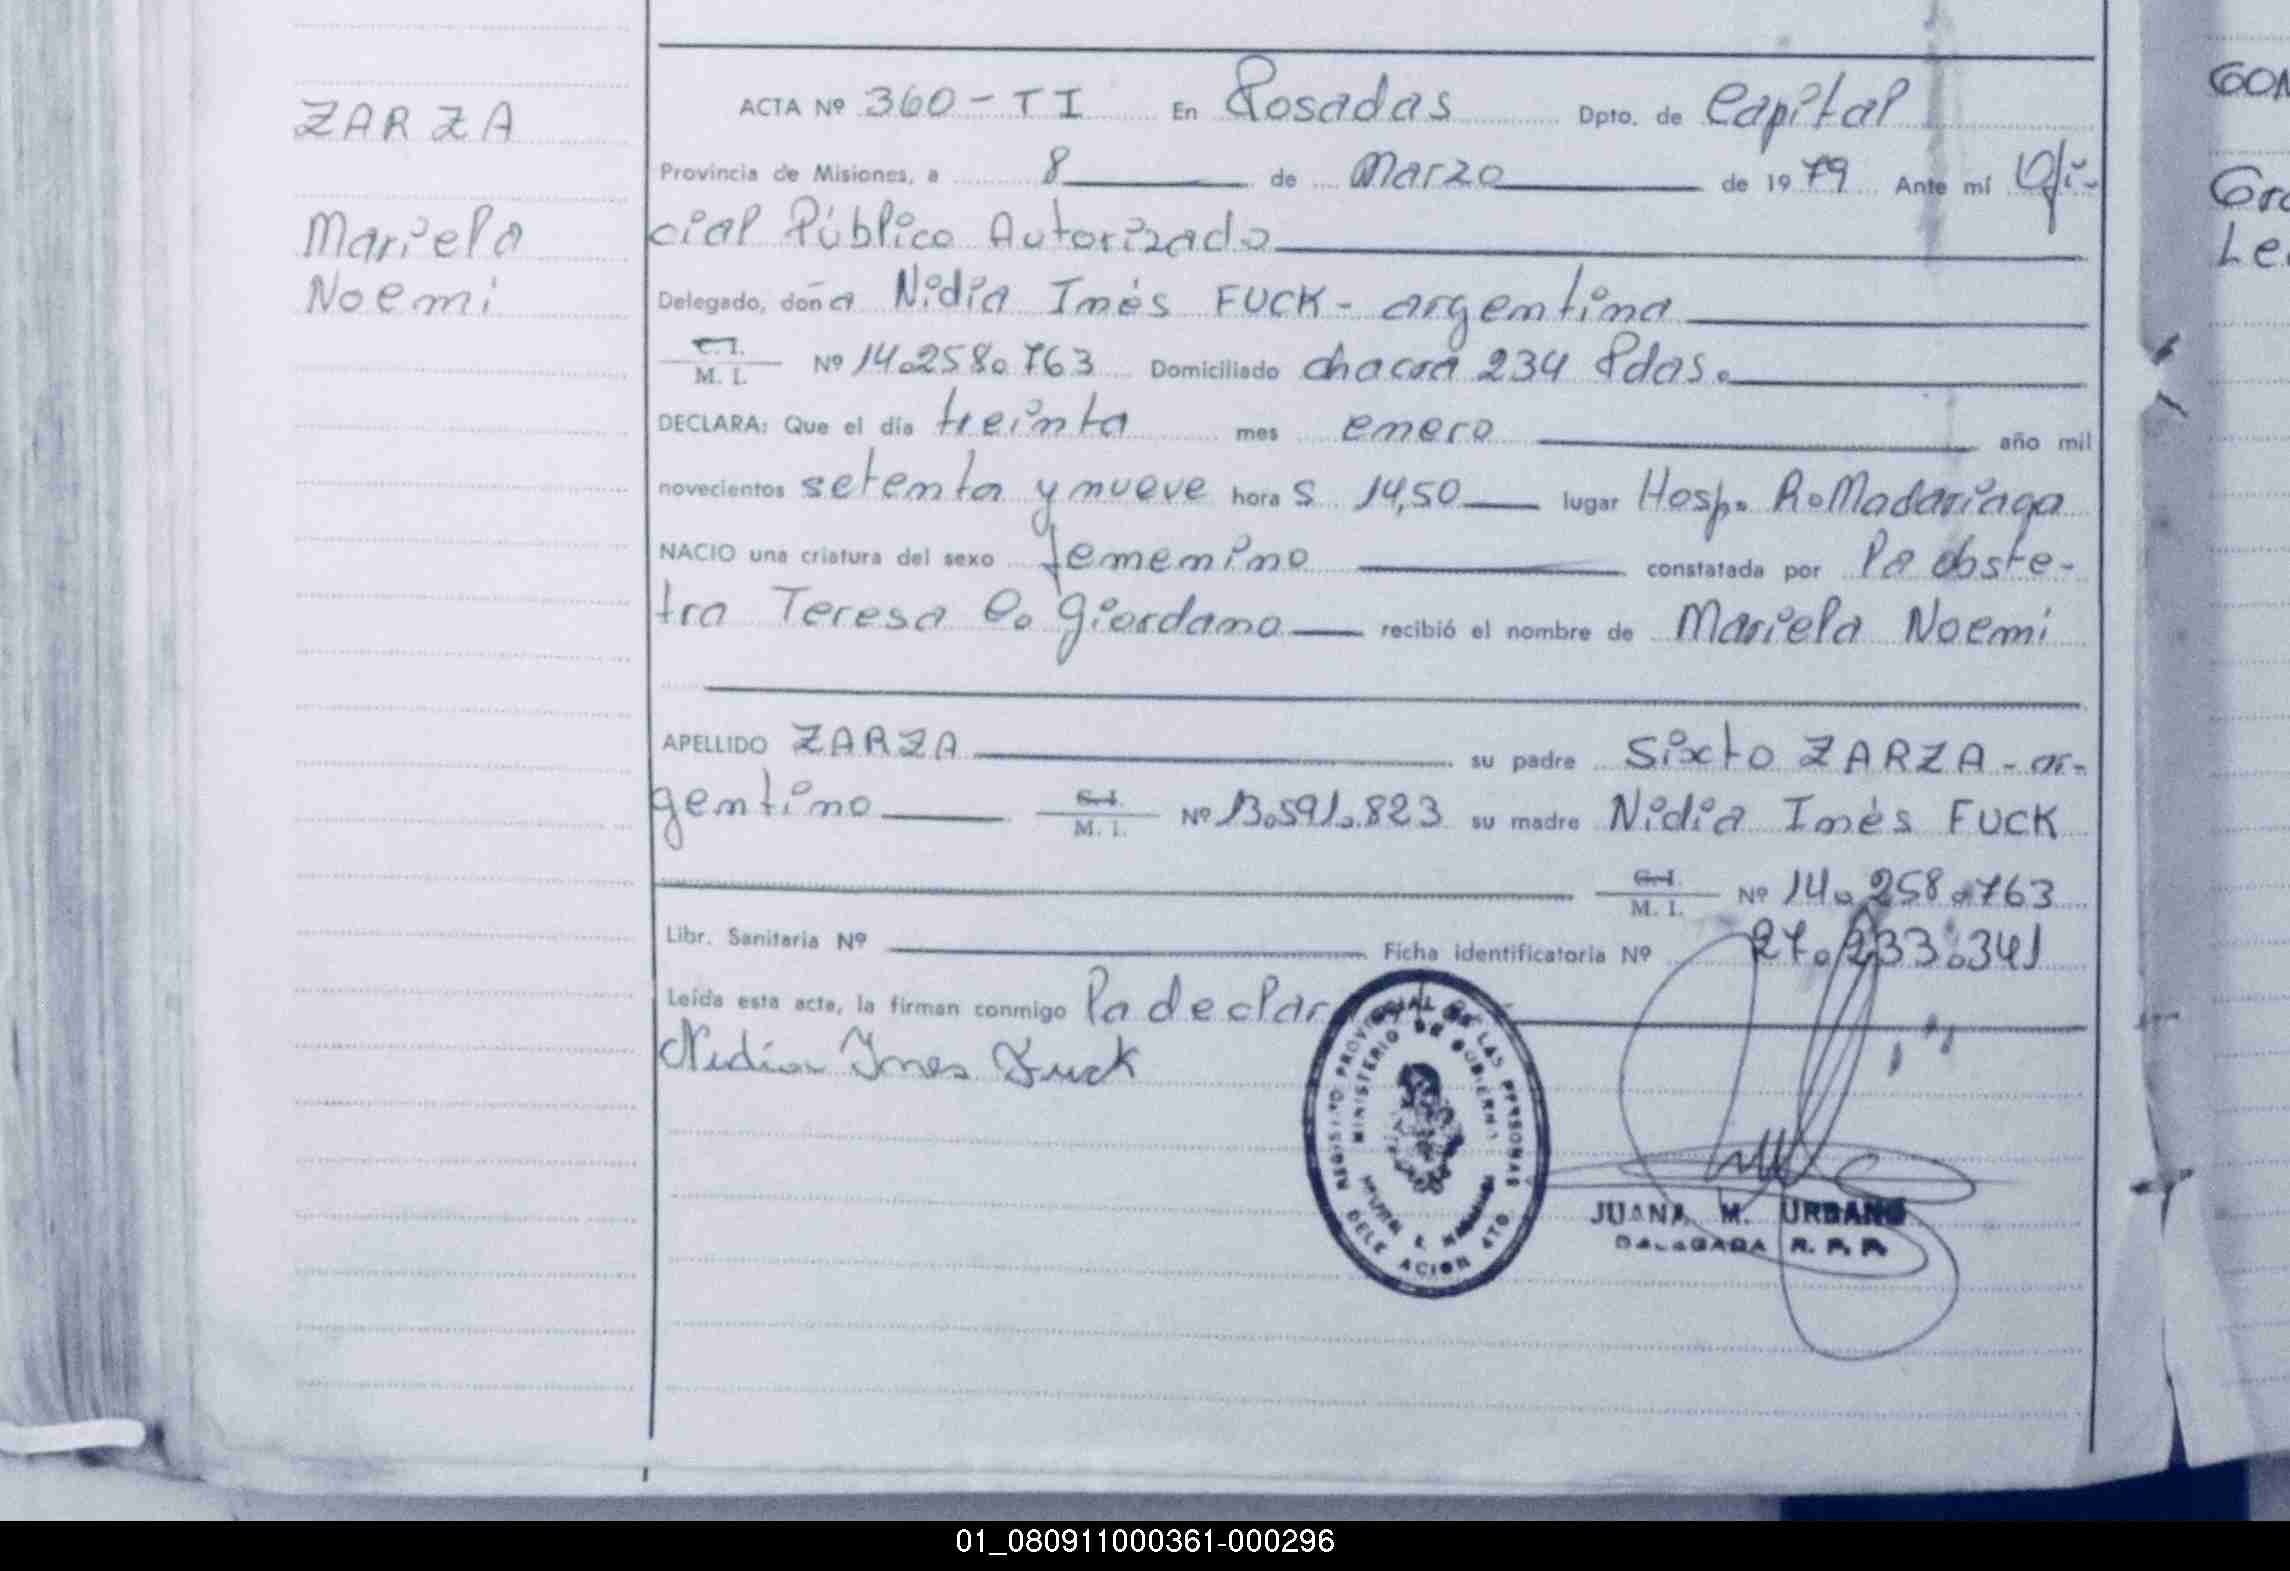 ZARZA
Mariela
Noemi
ACTA Nº 360-TI En Posadas Dpto. de Capital
Provincia de Misiones, a 8 de Marzo de 1979 Ante mí Ofi-
cial Público Autorizado
Delegado, doña Nidia Inés FUCK - argentina
C.I.
M. I. Nº 14.258.763 Domiciliado chacra 234 Pdas.
DECLARA: Que el día treinta mes enero año mil
novecientos setenta y nueve hora s 14,50 lugar Hosp. R.Madariaga
NACIO una criatura del sexo femenino constatada por la obste-
tra Teresa C. Giordano recibió el nombre de Mariela Noemi
APELLIDO ZARZA su padre Sixto ZARZA - ar-
gentino C.I.
M. I. Nº 13.591.823 su madre Nidia Inés FUCK
C.I.
M. I. Nº 14.258.763
Libr. Sanitaria Nº Ficha identificatoria Nº 27.233.341
Leída esta acta, la firman conmigo la declar
Nidia Ines Fuck
REGISTRO PROVINCIAL DE LAS PERSONAS
MINISTERIO DE GOBIERNO
DELEGACION
JUANA M. URBANO
DELEGADA R. P. P.
GON
Gra
Le
01_080911000361-000296